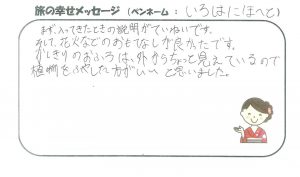 旅の幸せメッセージ（ペンネーム： いろはにほへと）
まず、入ってきたときの説明がていねいです。
そして、花火などのおもてなしが良かったです。
かしきりのおふろは、外からちょっと見えているので
植物をふやした方がいいと思いました。